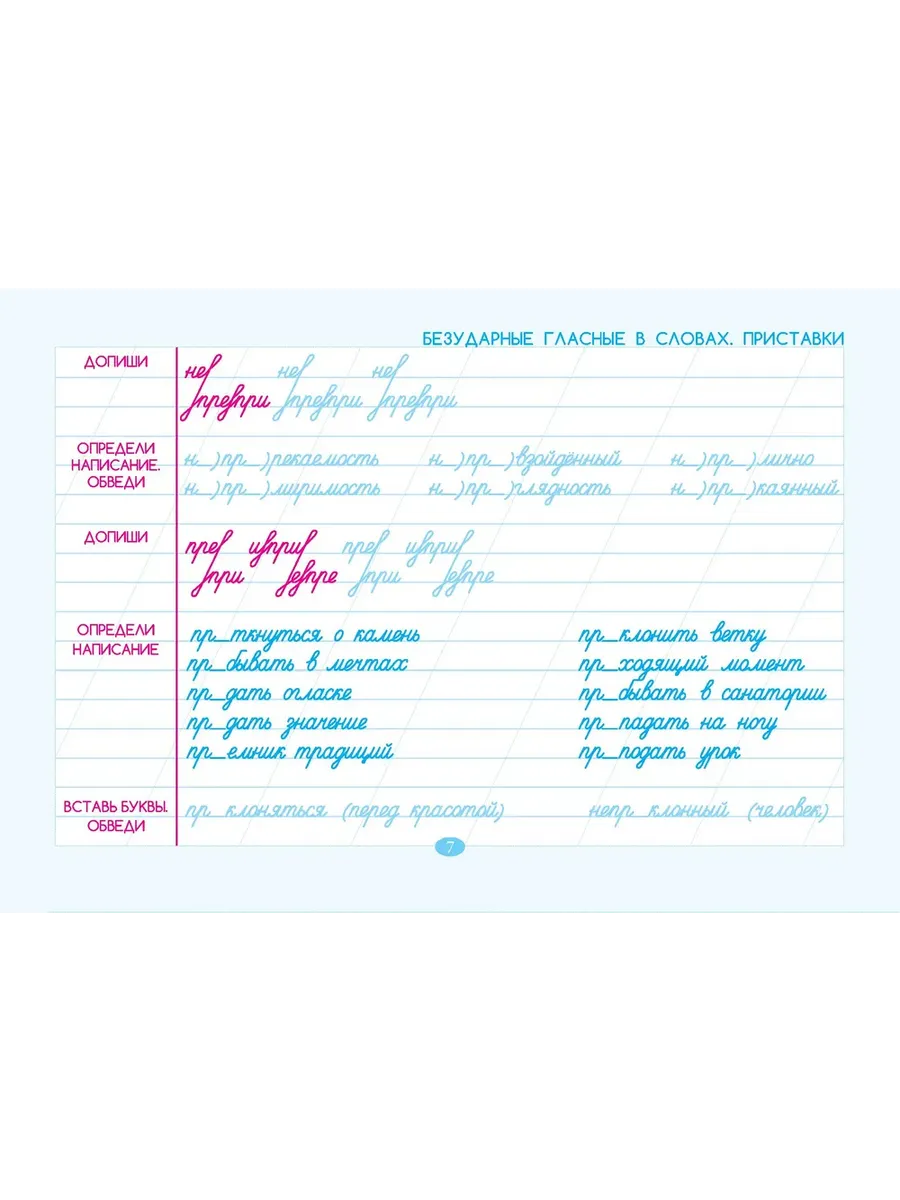 БЕЗУДАРНЫЕ ГЛАСНЫЕ В СЛОВАХ. ПРИСТАВКИ
ДОПИШИ
не не не
препри препри препри
ОПРЕДЕЛИ НАПИСАНИЕ. ОБВЕДИ
н_)пр_)рекаемость н_)пр_)взойдённый н_)пр_)лично
н_)пр_)миримость н_)пр_)глядность н_)пр_)каянный
ДОПИШИ
пре ипри пре ипри
при епре при епре
ОПРЕДЕЛИ НАПИСАНИЕ
пр_ткнуться о камень пр_клонить ветку
пр_бывать в мечтах пр_ходящий момент
пр_дать огласке пр_бывать в санатории
пр_дать значение пр_падать на ногу
пр_емник традиций пр_подать урок
ВСТАВЬ БУКВЫ. ОБВЕДИ
пр клоняться (перед красотой) непр клонный (человек)
7